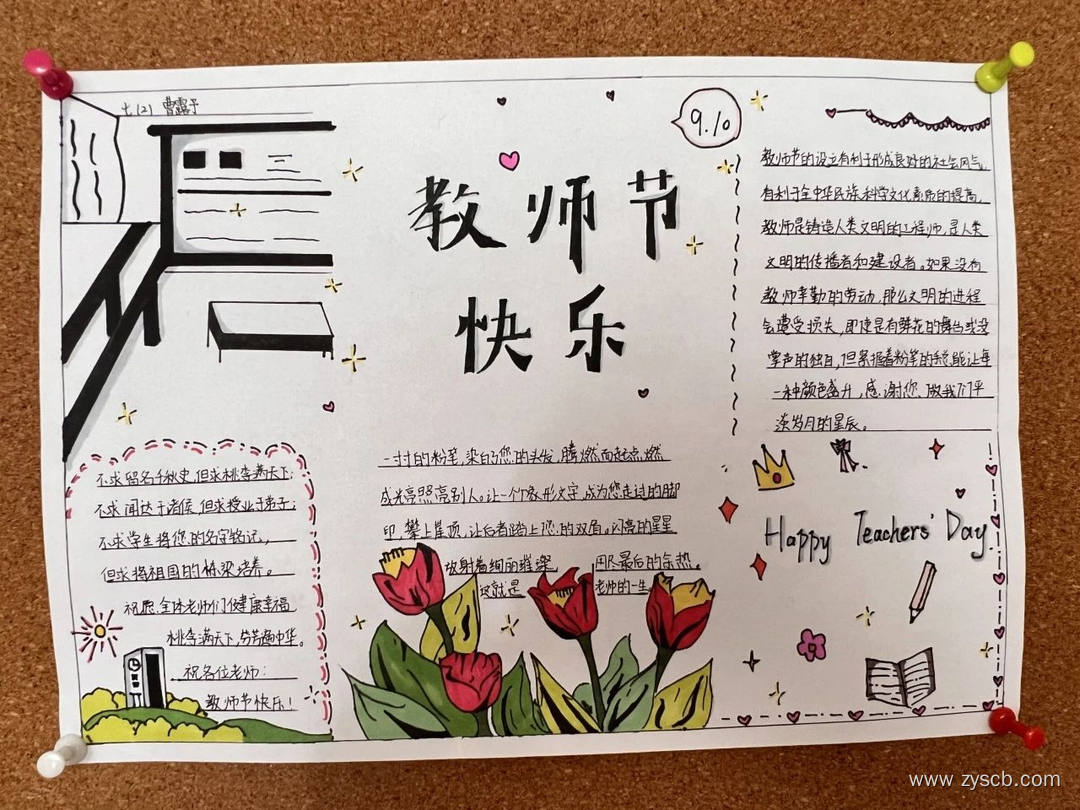 七(2) 曹露予
9.10
教师节
快乐
教师节的设立有利于形成良好的社会风气,
有利于全中华民族科学文化素质的提高,
教师是铸造人类文明的工程师,是人类
文明的传播者和建设者。如果没有
教师辛勤的劳动,那么文明的进程
会遭受损失,即使是有鲜花的舞台或没
掌声的独白,但紧握着粉笔的手总能让每
一种颜色盛升,感谢您,做我们平
淡岁月的星辰。
不求留名千秋史,但求桃李满天下;
不求闻达于诸侯,但求授业于弟子;
不求学生将您的名字铭记,
但求将祖国的栋梁培养。
祝愿全体老师们健康幸福
桃李满天下,芬芳遍中华。
祝各位老师:
教师节快乐!
一寸寸的粉笔,染白了您的头发,腾燃而起点燃
成光亮照亮别人。让一个个象形文字,成为您走过的脚
印,攀上崖顶,让后者踏上您的双肩。闪亮的星星
放射着绚丽璀璨 用尽最后的余热。
这就是 老师的一生
Happy Teachers' Day.
www.zyscb.com